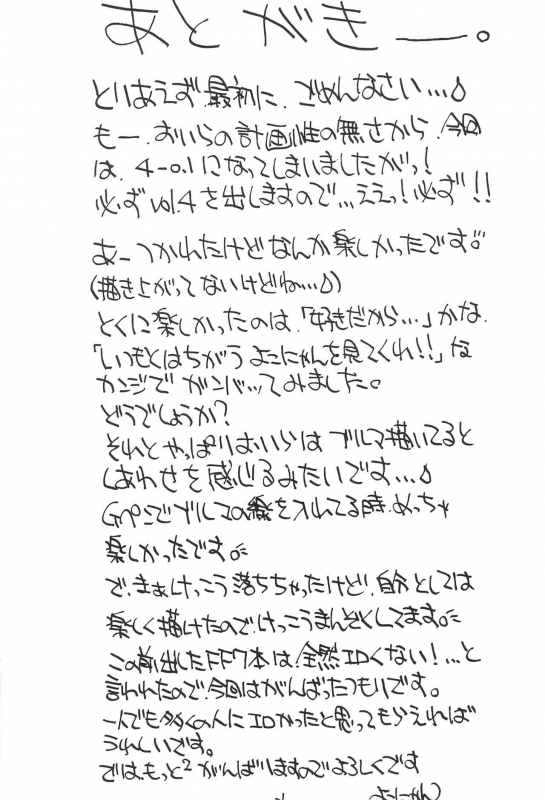 あとがきー。
とりあえず最初に、ごめんなさい…
もー、おいらの計画性の無さから、今回
は、4-0.1になってしまいましたがっ!
必ずvol.4を出しますので…ええっ!必ず!!
あーつかれたけどなんか楽しかったです
(描き上がってないけどね…)
とくに楽しかったのは、「好きだから…」かな、
「いつもとはちがうよこにゃんを見てくれ!!」な
カンジでガンバってみました。
どうでしょうか?
それとやっぱりおいらはブルマ描いてると
しあわせを感じるみたいです…
Gペンでブルマの線を入れてる時、めっちゃ
楽しかったです。
で、まぁけっこう落ちちゃったけど、自分としては
楽しく描けたので、けっこうまんぞくしてます。
この前出したFF7本は、全然エロくない!…と
言われたので、今回はがんばったつもりです。
一人でも多くの人にエロかったと思ってもらえれば
うれしいです。
では、もっと²がんばりますのでよろしくです